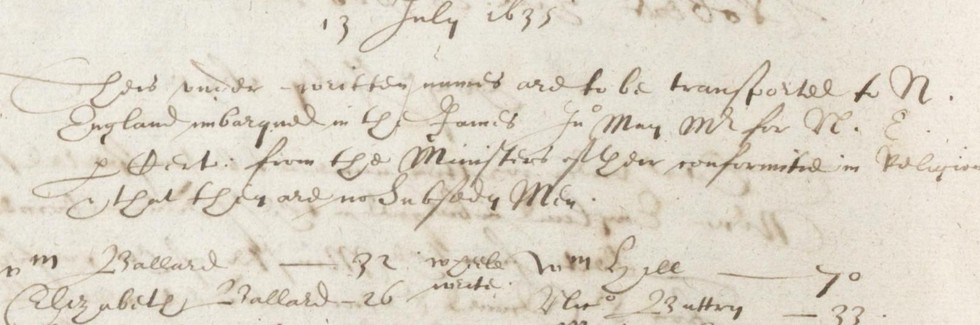 13 July 1635
Theis under-written names are to be transported to N.
England imbarqued in the James Jno May Mr for N. E.
p Cert: from the Ministers of their conformitie in Religion
that they are no Subsedy Men.
wm Ballard — 32 Wm Hill — 70
Elizabeth Ballard - 26 Buttry — 33.